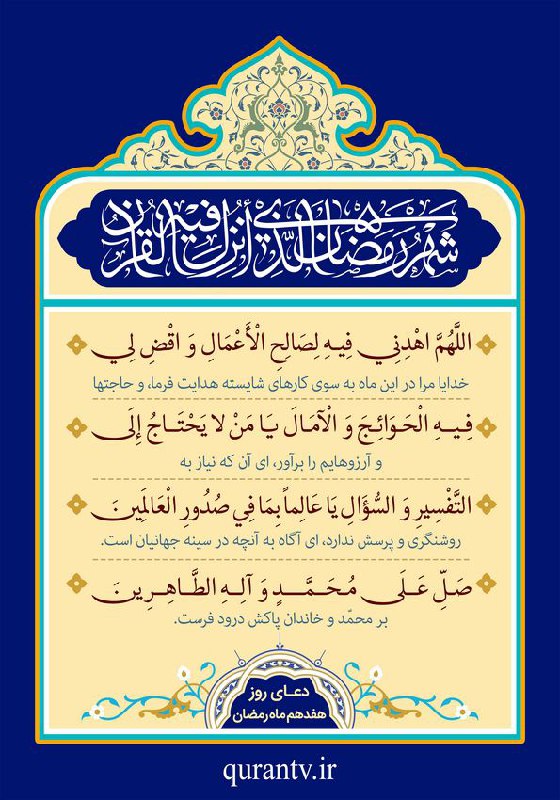 شَهْرُ رَمَضَانَ الَّذِي أُنْزِلَ فِيهِ الْقُرْآنُ
اللَّهُمَّ اهْدِنِي فِيهِ لِصَالِحِ الْأَعْمَالِ وَ اقْضِ لِي
خدایا مرا در این ماه به سوی کارهای شایسته هدایت فرما، و حاجتها
فِيهِ الْحَوَائِجَ وَ الْآمَالَ يَا مَنْ لا يَحْتَاجُ إِلَى
و آرزوهایم را برآور، ای آن که نیاز به
التَّفْسِيرِ وَ السُّؤَالِ يَا عَالِماً بِمَا فِي صُدُورِ الْعَالَمِينَ
روشنگری و پرسش ندارد، ای آگاه به آنچه در سینه جهانیان است.
صَلِّ عَلَى مُحَمَّدٍ وَ آلِهِ الطَّاهِرِينَ
بر محمّد و خاندان پاکش درود فرست.
دعای روز
هفدهم ماه رمضان
qurantv.ir